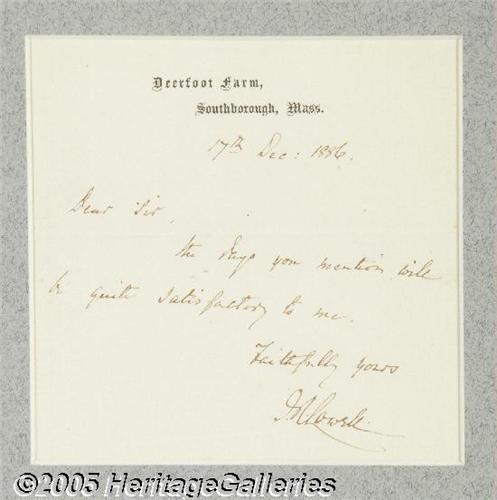 Deerfoot Farm,
Southborough, Mass.
17th Dec: 1886.
Dear Sir,
the days you mention will
be quite satisfactory to me.
Faithfully yours
J R Lowell.
©2005 HeritageGalleries